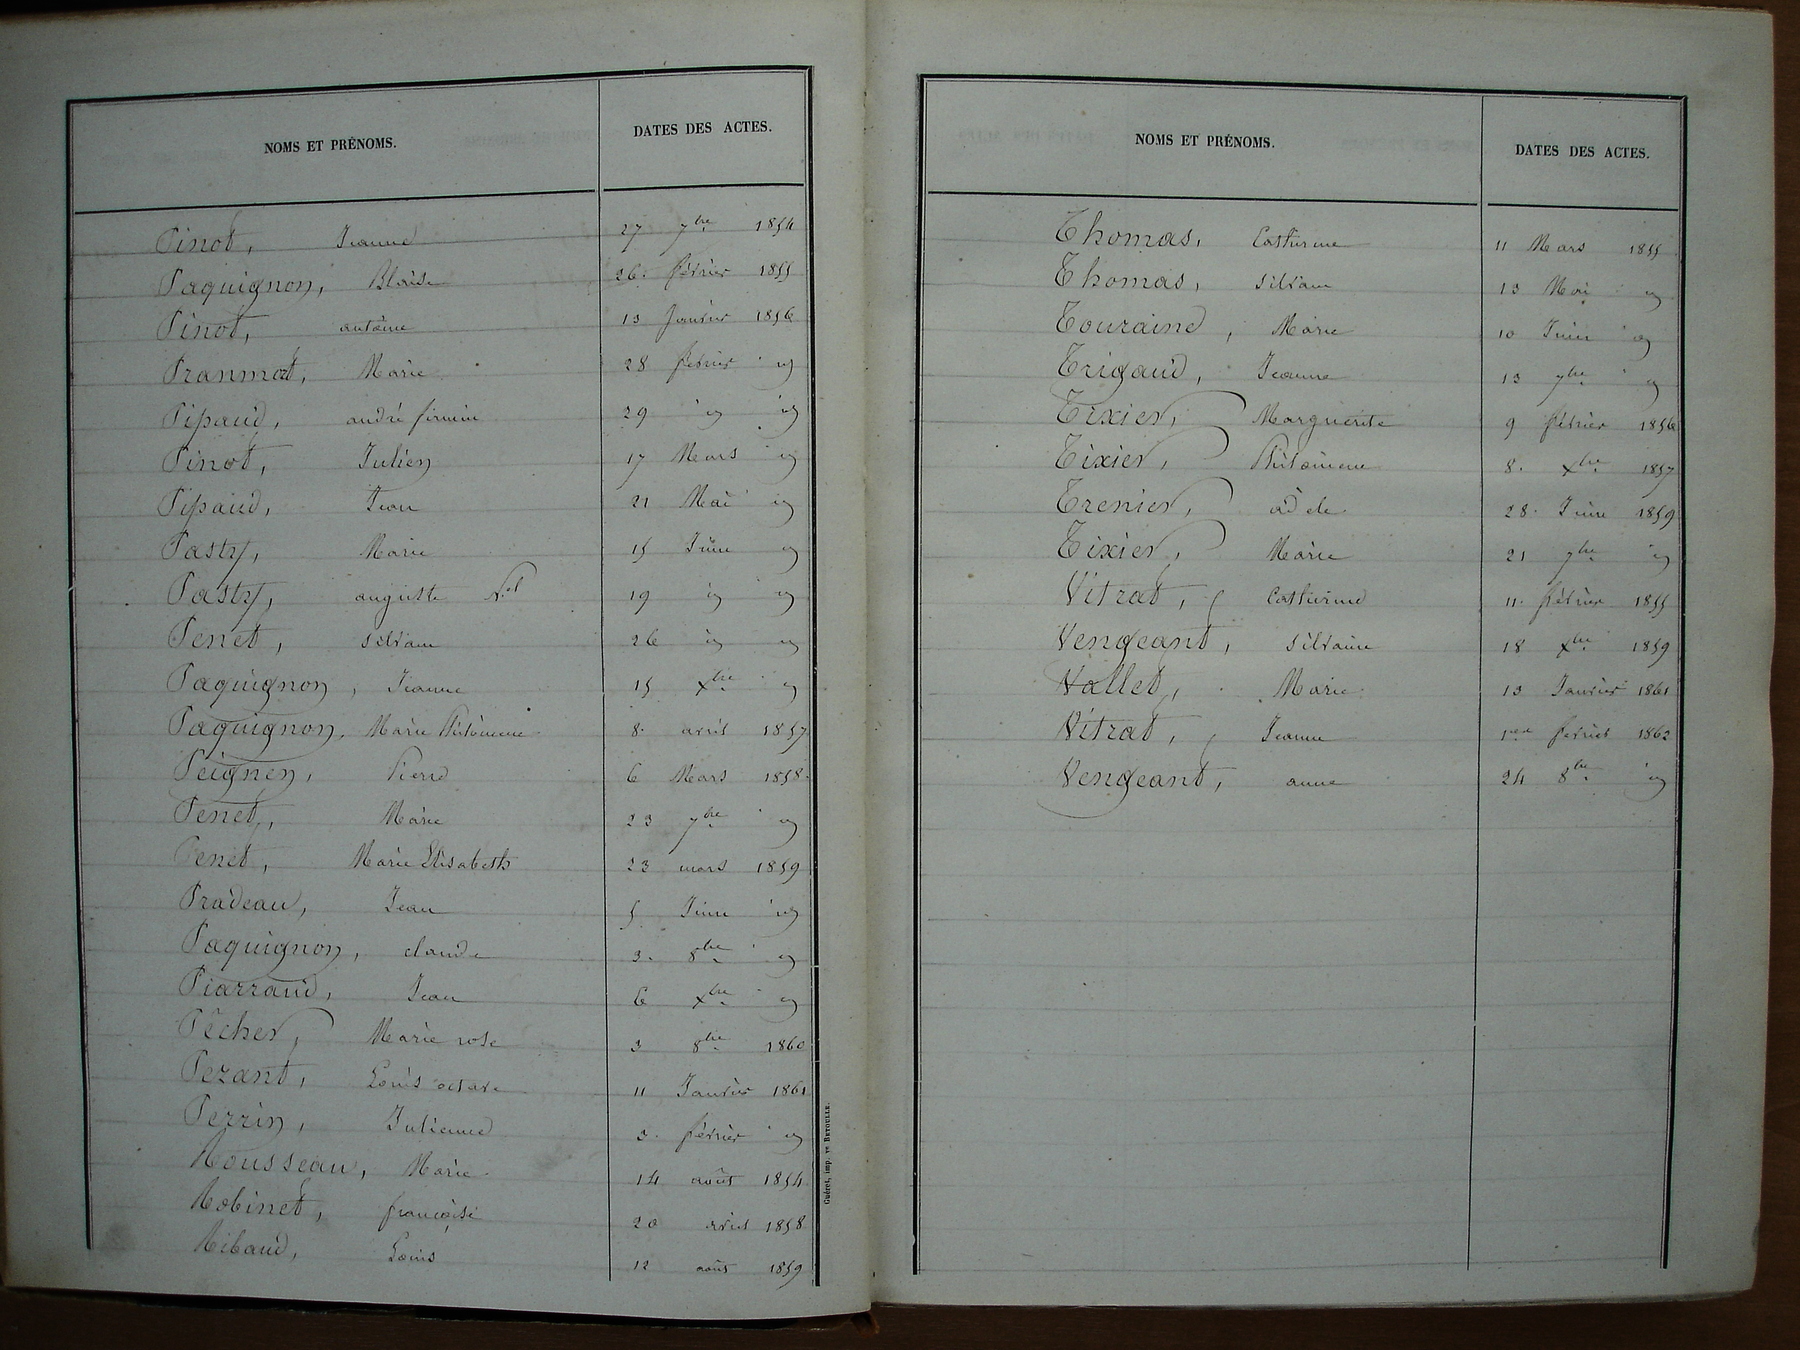 NOMS ET PRÉNOMS. DATES DES ACTES.
Pinot, Jeanne 27 7bre 1854
Paquignon, Blaise 26 février 1855
Pinot, antoine 13 Janvier 1856
Pranmat, Marie 28 février id
Pipaud, andré firmin 29 id id
Pinot, Julien 17 Mars id
Pipaud, Jean 21 Mai id
Pasty, Marie 15 Juin id
Pasty, auguste Nel 19 id id
Penet, silvain 26 id id
Paquignon, Jeanne 15 xbre id
Paquignon, Marie Philomene 8 avril 1857
Peignen, Pierre 6 Mars 1858
Penet, Marie 23 7bre id
Penet, Marie Elisabeth 23 mars 1859
Pradeau, Jean 5 Juin id
Paquignon, claude 3 8bre id
Piarraud, Jean 6 xbre id
Pêcher, Marie rose 3 8bre 1860
Pezant, Louis octave 11 Janvier 1861
Perrin, Julienne 3 février id
Rousseau, Marie 14 août 1854
Robinet, françoise 20 avril 1858
Ribaud, Louis 12 août 1859
Guéret, imp. ve Betoulle.
NOMS ET PRÉNOMS. DATES DES ACTES.
Thomas, Catherine 11 Mars 1855
Thomas, silvain 13 Mai id
Touraine, Marie 10 Juin id
Trigaud, Jeanne 13 7bre id
Tixier, Marguerite 9 février 1856
Tixier, Philomene 8 xbre 1857
Trenier, adele 28 Juin 1859
Tixier, Marie 21 7bre id
Vitrat, Catherine 11 février 1855
Vengeant, silvaine 18 xbre 1859
Vallet, Marie 13 Janvier 1861
Vitrat, Jeanne 1er février 1862
Vengeant, anne 24 8bre id